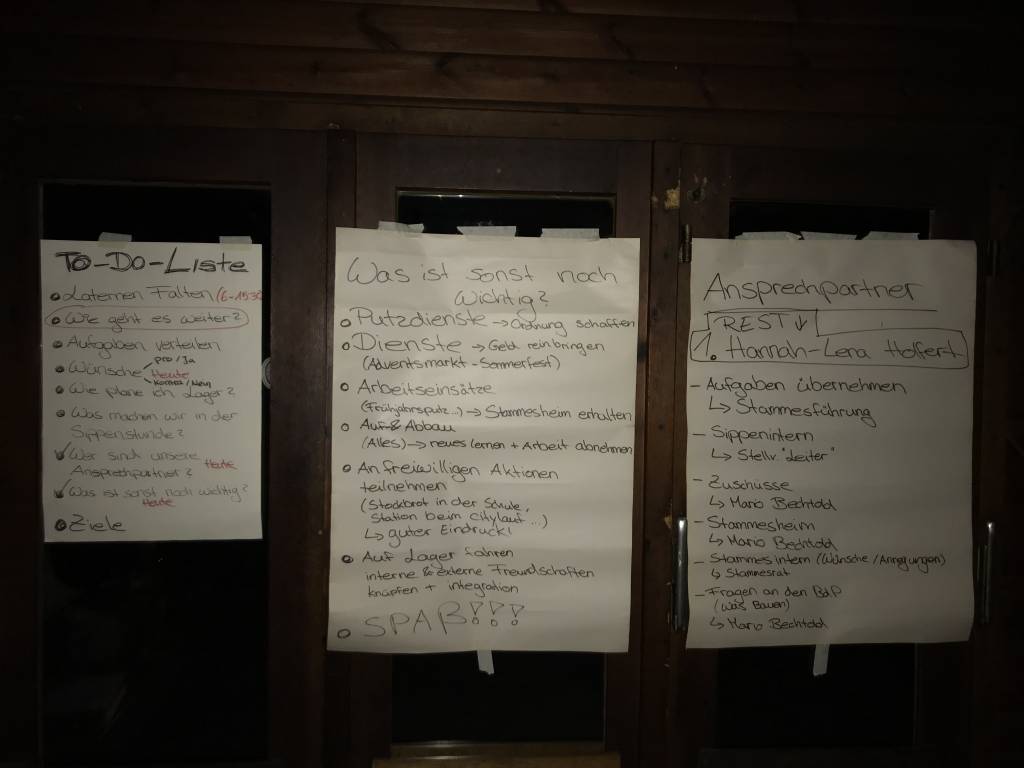 To-Do-Liste
Laternen Falten
Wie geht es weiter?
Aufgaben verteilen
pro/Ja
Wünsche Heute
Kontra/Nein
Wie plane ich Lager?
Was machen wir in der
Sippenstunde?
Wer sind unsere Heute
Ansprechpartner?
Was ist sonst noch wichtig?
Heute
Ziele
Was ist sonst noch
wichtig?
Putzdienste → Ordnung schaffen
Dienste → Geld reinbringen
(Adventsmarkt - Sommerfest)
Arbeitseinsätze
(Frühjahrsputz...) → Stammesheim erhalten
Auf & Abbau
(Alles) → neues lernen + Arbeit abnehmen
An freiwilligen Aktionen
teilnehmen
(Stockbrot in der Schule,
Station beim Citylauf...)
↳ guter Eindruck!
Auf Lager fahren
interne & externe Freundschaften
knüpfen + integration
SPAß!!!
Ansprechpartner
REST ↓
1. Hannah-Lena
- Aufgaben übernehmen
↳ Stammesführung
- Sippenintern
↳ Stellv. "Leiter"
- Zuschüsse
↳ Mario Bechtold
- Stammesheim
↳ Mario Bechtold
- Stammesintern (Wünsche/Anregungen)
↳ Stammesrat
- Fragen an den BdP
(Was Bauen)
↳ Mario Bechtold